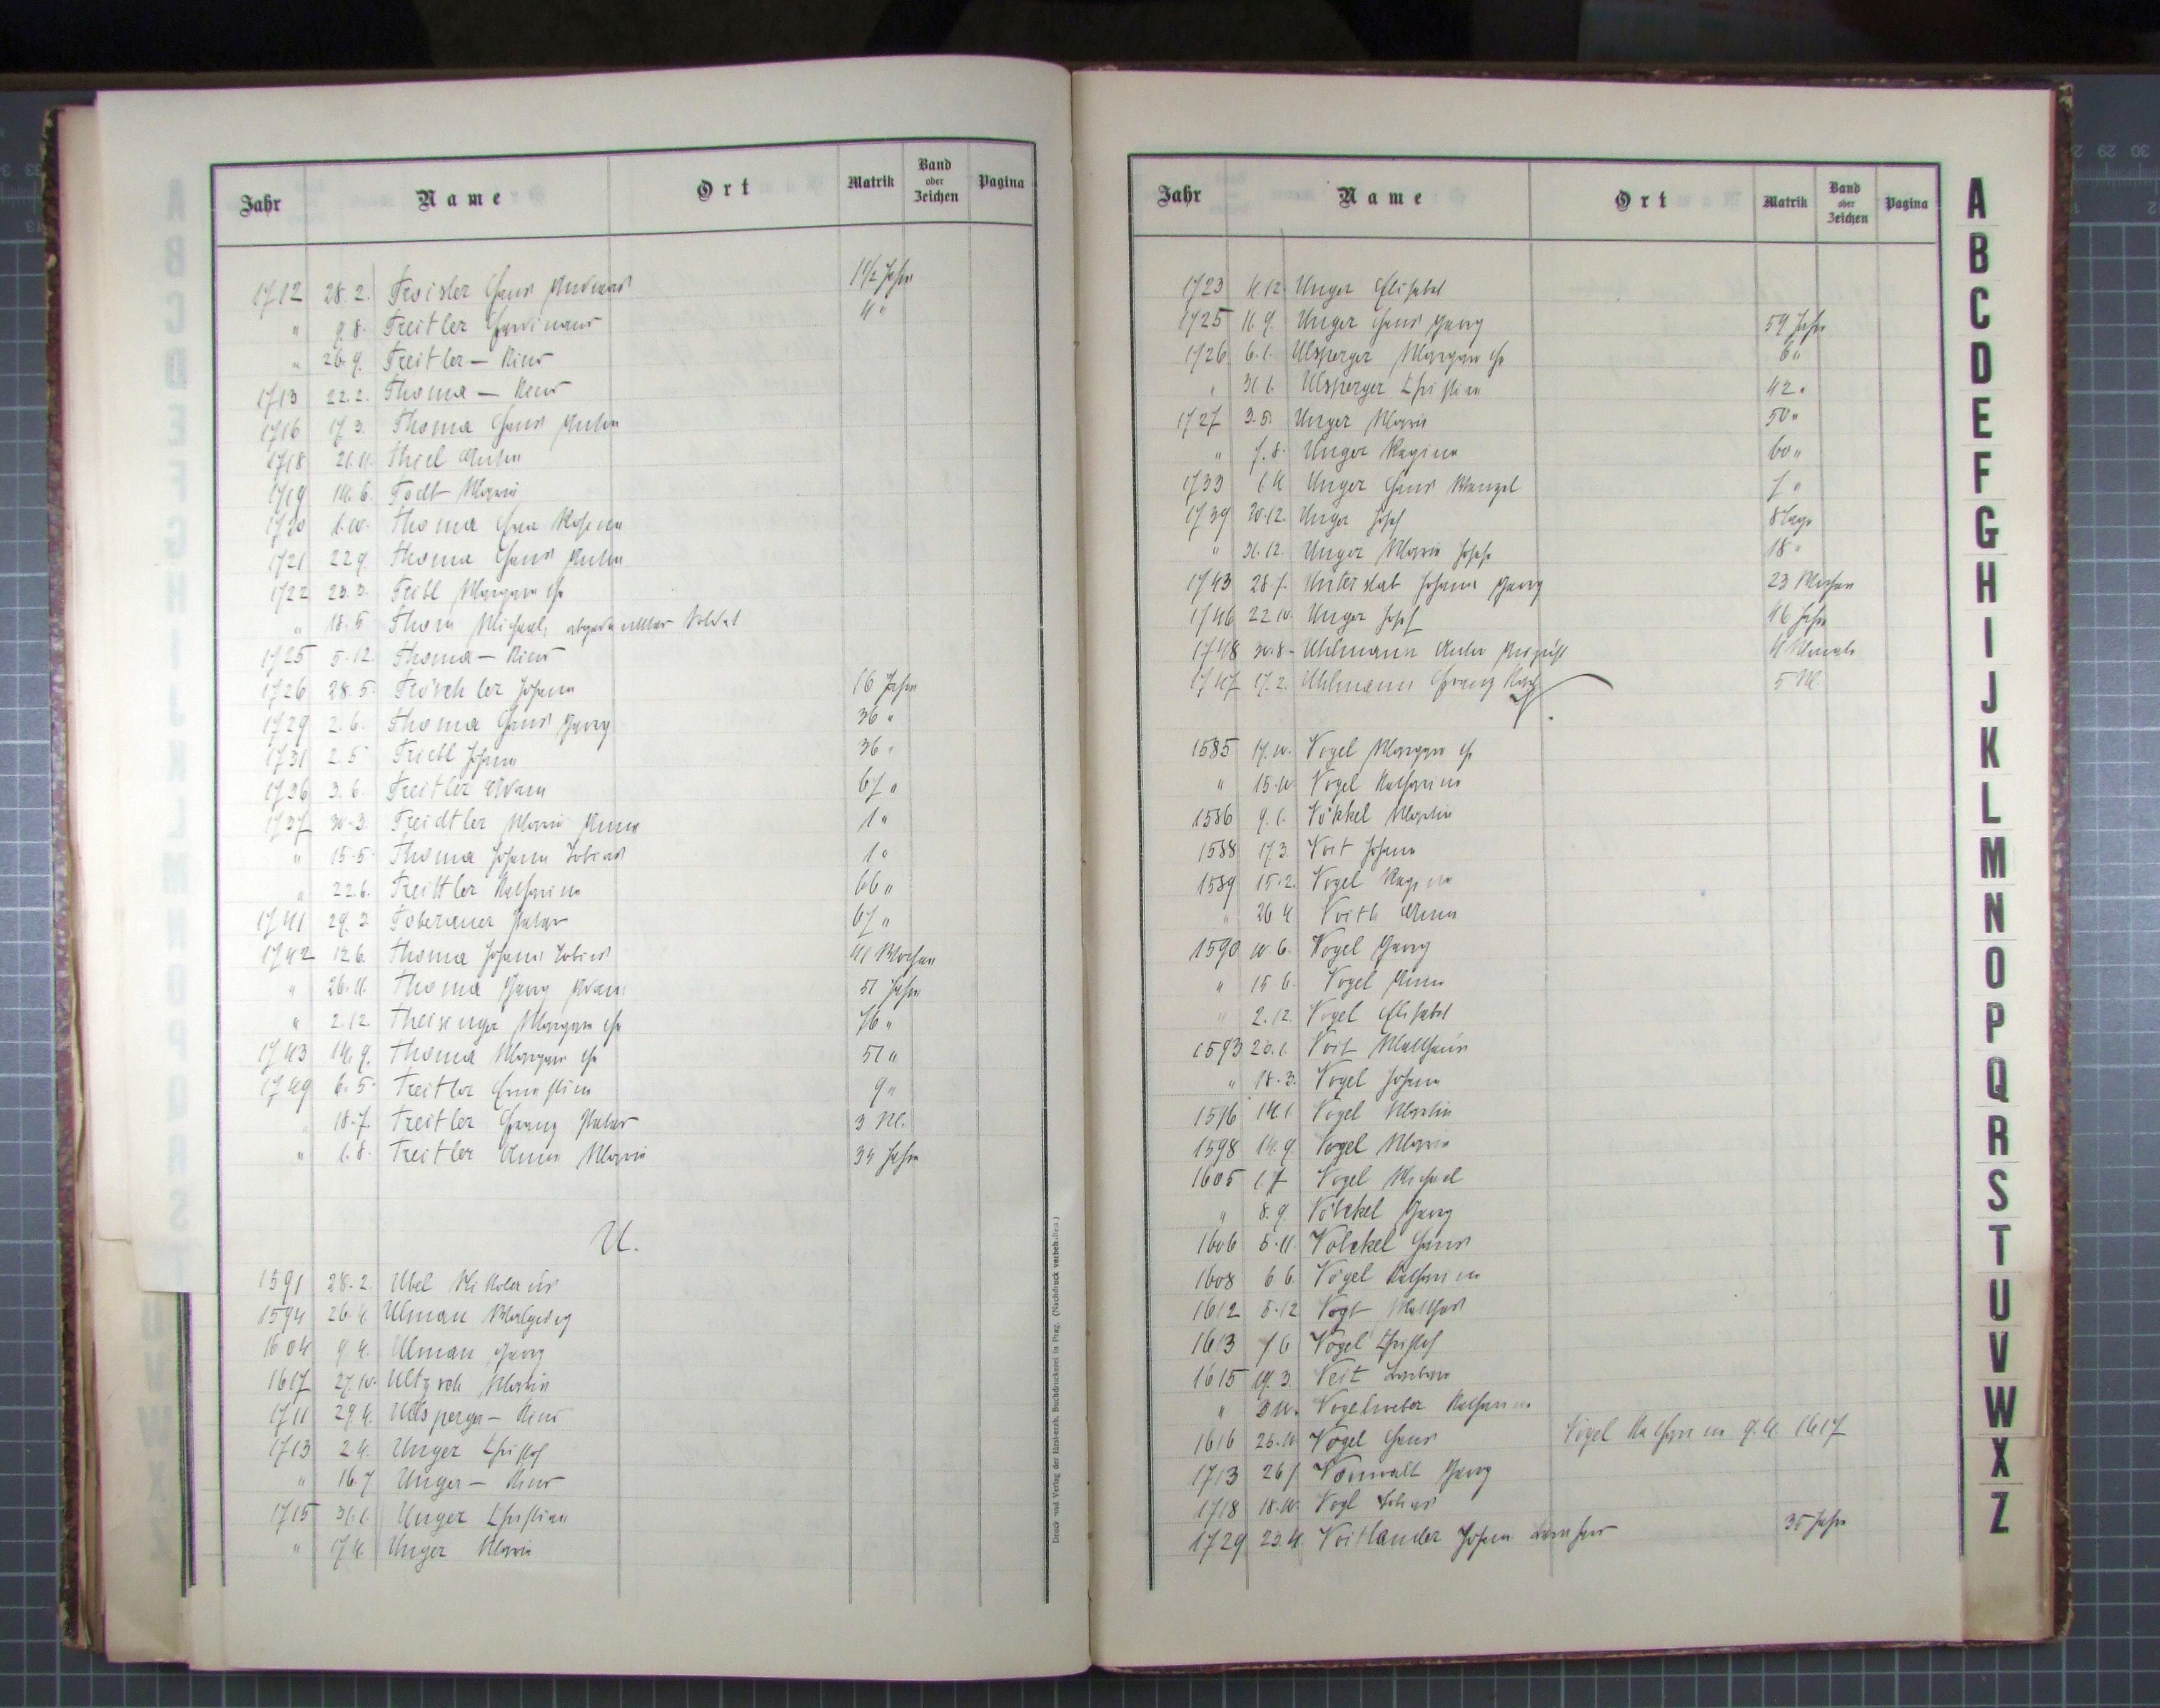 Jahr Name Ort Matrik Band oder Zeichen Pagina
1712 28.2. Troisler Hans Andreas 1 1/2 Jahre
" 9.8. Treitler Ferdinand 4 "
" 26.9. Treitler — Kind
1713 22.2. Thoma — Kind
1716 17.3. Thoma Hans Anton
1718 21.11. Thiel Anton
1719 14.6. Todt Maria
1720 1.10. Thoma Eva Rosina
1721 22.9. Thoma Hans Anton
1722 23.3. Tribl Margarethe
" 18.5 Thom Michael, abgedankter Soldat
1725 5.12. Thoma — Kind
1726 28.5. Tröschler Johann 16 Jahre
1729 2.6. Thoma Hans Georg 36 "
1731 2.5 Triebl Johann 36 "
1736 3.6. Treitler Adam 67 "
1737 30.3. Treidtler Maria Anna 1 "
" 15.5. Thoma Johann Tobias 1 "
" 22.6. Treittler Katharina 66 "
1741 29.3 Toberauer Peter 67 "
1742 12.6. Thoma Johann Tobias 41 Wochen
" 26.11. Thoma Georg Adam 51 Jahre
" 2.12 Theisinger Margarethe 76 "
1743 14.9. Thoma Margarethe 51 "
1749 6.5. Treitler Ernestina 9 "
" 18.7. Treitler Franz Peter 3 M.
" 1.8. Treitler Anna Maria 34 Jahre
U.
1591 28.2. Ubel Nikolaus
1594 26.4. Ulman
1604 9.4. Ulman Georg
1617 27.10. Martin
1711 29.4. Ulsperger — Kind
1713 2.4. Unger Christof
" 16.7 Unger — Kind
1715 31.1. Unger Christian
" 17.4. Unger Maria
Druck und Verlag der fürst-erzb. Buchdruckerei in Prag. (Nachdruck verboten.)
Jahr Name Ort Matrik Band oder Zeichen Pagina
1723 4.12. Unger Elisabet
1725 11.9. Unger Hans Georg 59 Jahre
1726 6.1. Ulsperger Margarethe 6 "
" 31.1. Ulsperger Christian 42 "
1727 3.5. Unger Maria 50 "
" 7.8. Unger Regina 60 "
1733 1.4. Unger Hans Wenzel 7 "
1739 20.12. Unger Josef 8 Tage
" 31.12. Unger Maria Josefa 18 "
1743 28.7. Johann Georg 23 Wochen
1746 22.10. Unger Josef 46 Jahre
1748 30.8. Uhlmann Anton August 4 Monate
1747 17.2. Uhlmann Franz Karl 5 M.
1585 17.10. Vogel Margarethe
" 15.10. Vogel Katharina
1586 9.1. Vökkel Martin
1588 17.3. Voit Johann
1589 15.2. Vogel Regina
" 26.4. Voith Anna
1590 10.6. Vogel Georg
" 15.6. Vogel Anna
" 2.12. Vogel Elisabet
1593 20.1. Voit Matthäus
" 18.3. Vogel Johann
1596 14.1. Vogel Martin
1598 14.9. Vogel Maria
1605 1.7. Vogel Michael
" 8.9. Völckel Georg
1606 5.11 Völckel Hans
1608 6.6. Vogel Katharina
1612 5.12 Vogt Matthes
1613 7.6 Vogel Christof
1615 19.3. Veit Barbara
" 3.10. Vogelweber Katharina
1616 26.10. Vogel Hans Vogel Katharina 9.4. 1617
1713 26.7 Vonwalt Georg
1718 18.10. Vogl Tobias
1729 23.4. Voitlander Johann Bernhard 35 Jahre
A
B
C
D
E
F
G
H
I
J
K
L
M
N
O
P
Q
R
S
T
U
V
W
X
Z